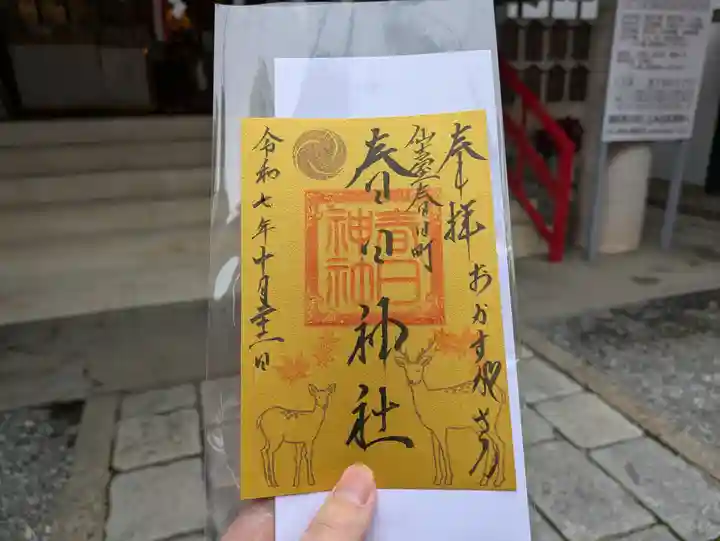 奉拝
おかすがさま
仙臺春日町
春日神社
春日
神社
令和七年十月二十一日